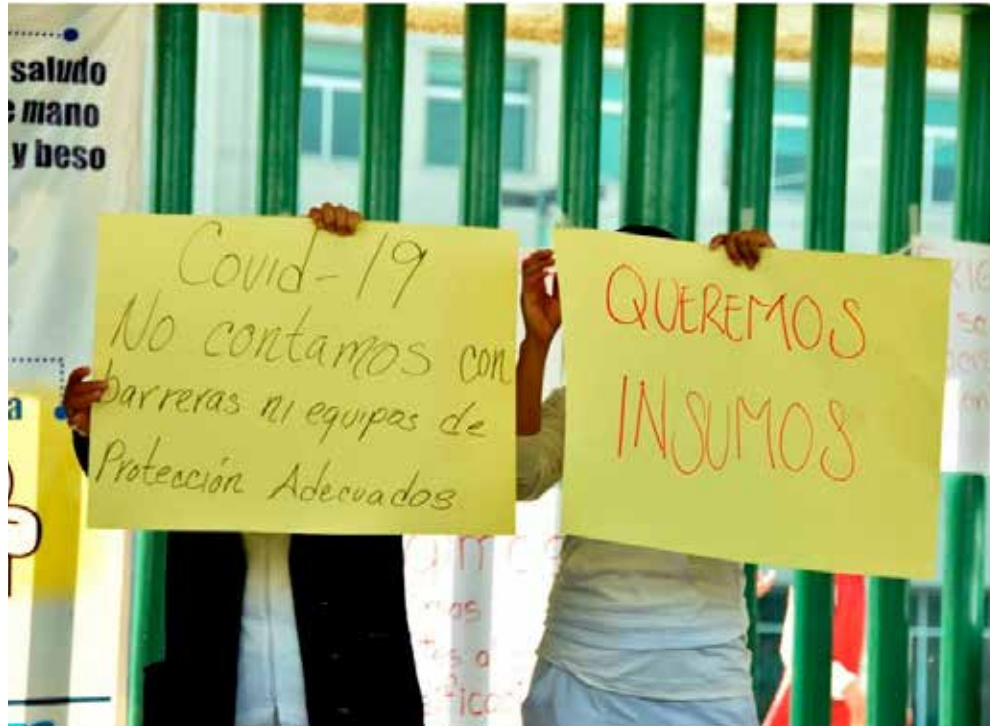 saludo
mano
y beso
Covid-19
No contamos con
barreras ni equipos de
Protección Adecuados
QUEREMOS
INSUMOS